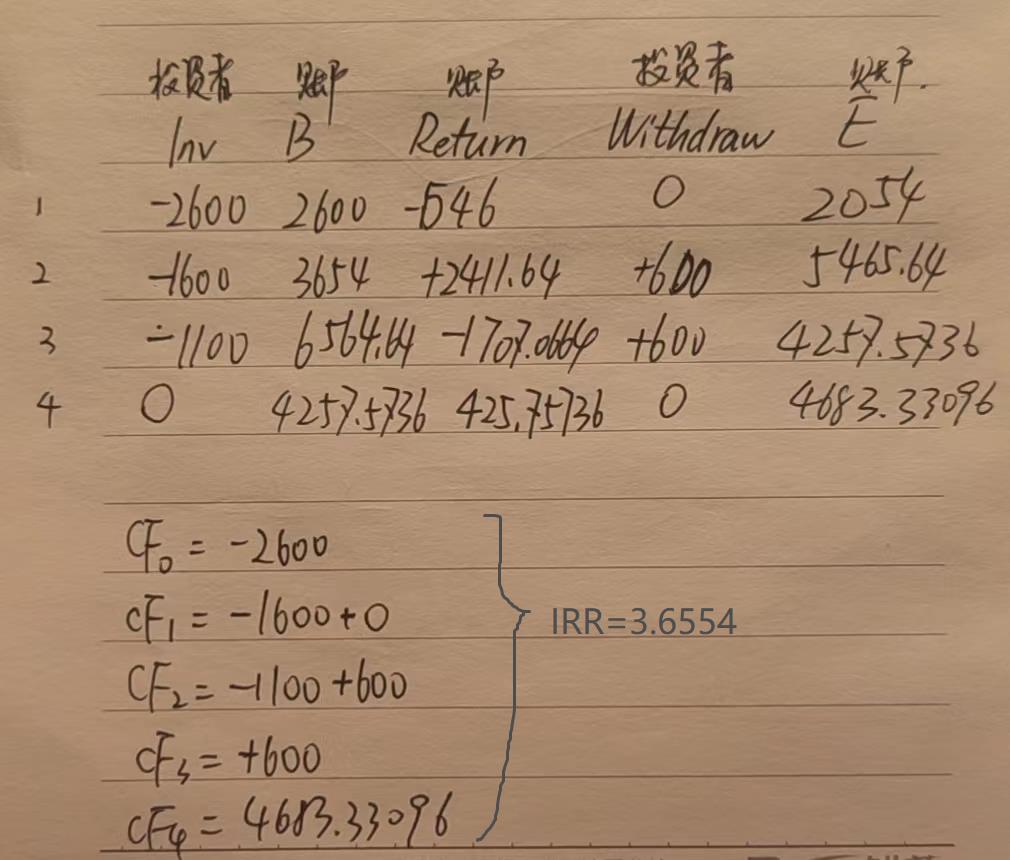 投资者 账户 账户 投资者 账户.
Inv B Return Withdraw E
1 -2600 2600 -546 0 2054
2 -1600 3654 +2411.64 +600 5465.64
3 -1100 6564.64 -1707.0664 +600 4257.5736
4 0 4257.5736 425.75736 0 4683.33096
CF₀ = -2600
CF₁ = -1600+0
CF₂ = -1100+600
IRR=3.6554
CF₃ = +600
CF₄ = 4683.33096